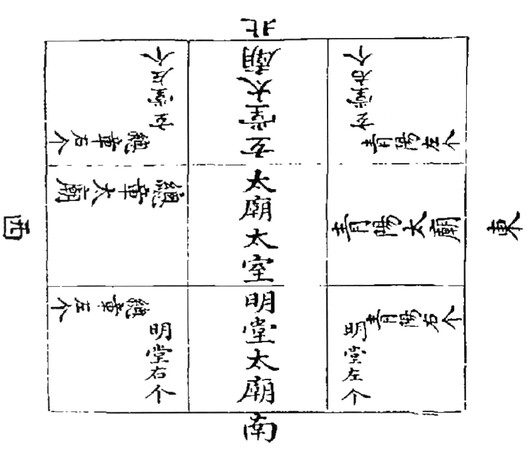 北
玄堂左个
總章右个
玄堂太廟
玄堂右个
青陽左个
西
總章大廟
太廟太室
青陽大廟
東
總章左个
明堂右个
明堂太廟
青陽右个
明堂左个
南